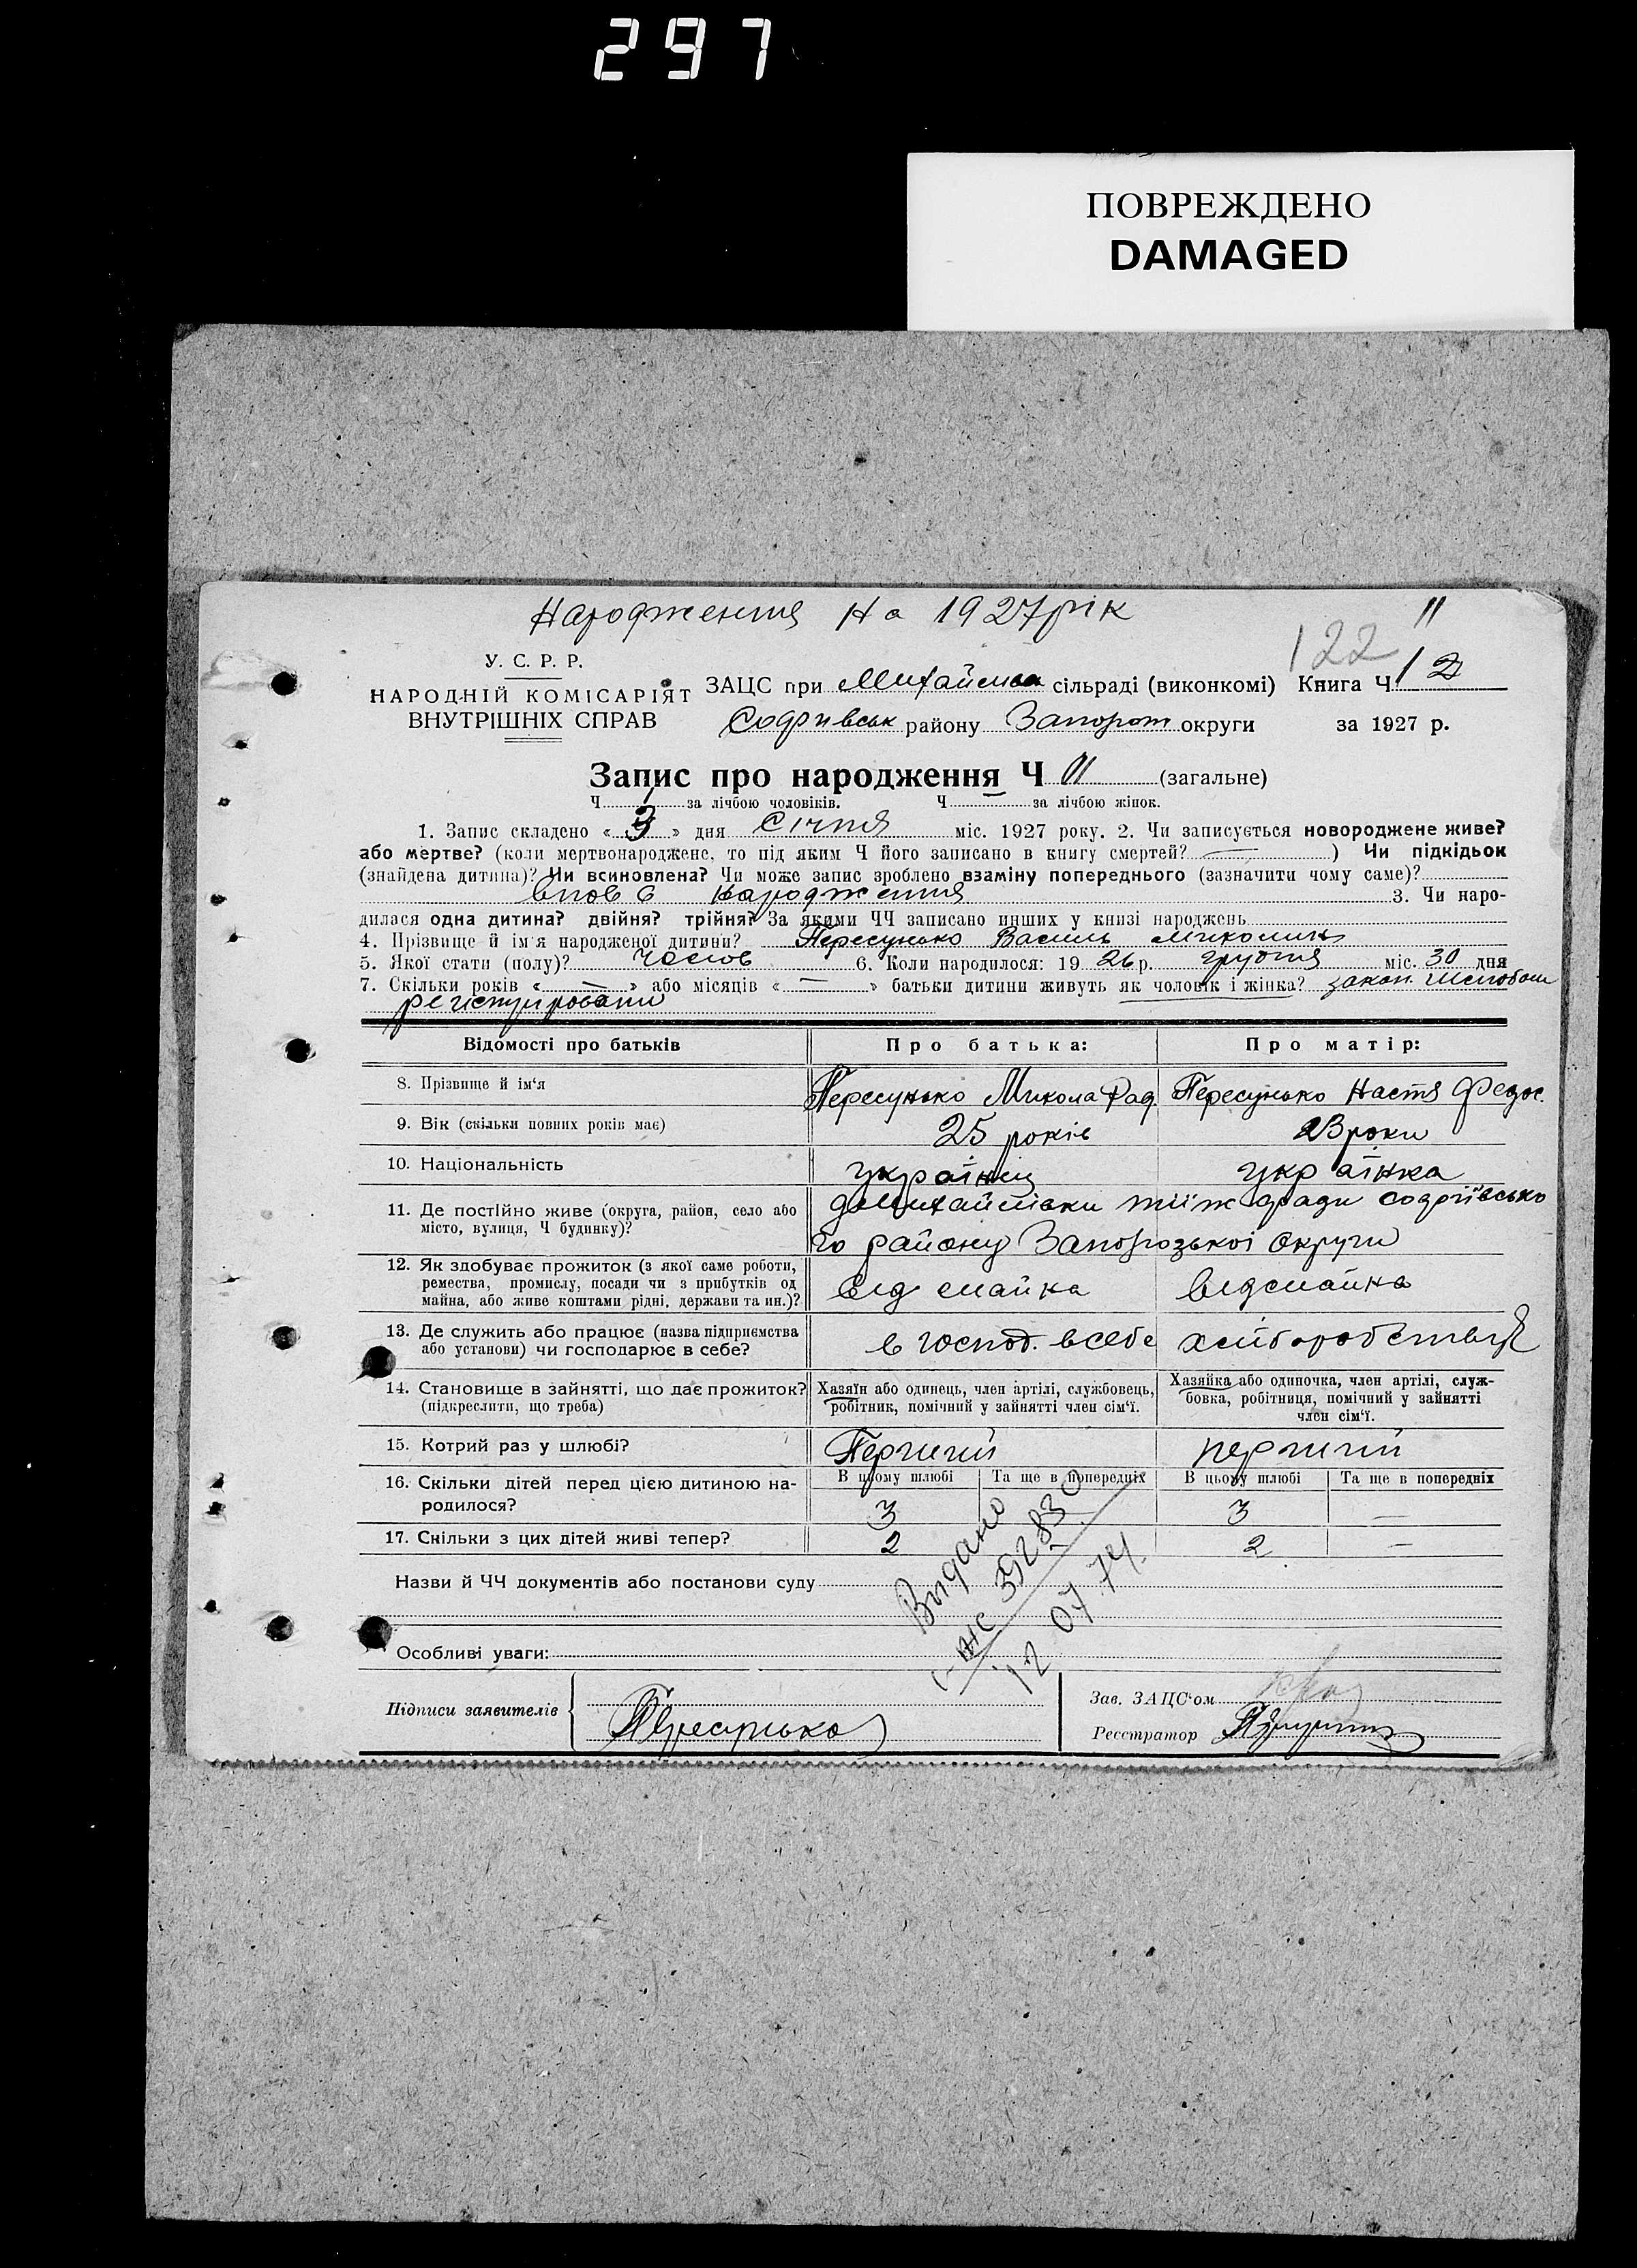 297
ПОВРЕЖДЕНО
DAMAGED
Народження На 1927 рік
"
122
У. С. Р. Р.
НАРОДНІЙ КОМІСАРІЯТ
ВНУТРІШНІХ СПРАВ
ЗАЦС при сільраді (виконкомі) Книга Ч 12
району Запорож округи за 1927 р.
Запис про народження Ч 11 (загальне)
Ч за лічбою чоловіків. Ч — за лічбою жінок.
1. Запис складено « 3 » дня Січня міс. 1927 року. 2. Чи записується новороджене живе?
або мертве? (коли мертвонароджене, то під яким Ч його записано в книгу смертей? — ) Чи підкідьок
(знайдена дитина)? Чи всиновлена? Чи може запис зроблено взаміну попереднього (зазначити чому саме)?
вновь народження 3. Чи наро-
дилася одна дитина? двійня? трійня? За якими ЧЧ записано инших у книзі народжень
4. Прізвище й ім'я народженої дитини? Пересунько Василь Миколин
5. Якої стати (полу)? 6. Коли народилося: 19 26 р. грудня міс. 30 дня
7. Скільки років « — » або місяців « — » батьки дитини живуть як чоловік і жінка? закон. шлюбом
Відомості про батьків
Про батька:
Про матір:
8. Прізвище й ім'я
Пересунько Микола Рад.
Пересунько Настя Федос.
9. Вік (скільки повних років має)
25 років
23 роки
10. Національність
українец
українка
11. Де постійно живе (округа, район, село або
місто, вулиця, Ч будинку)?
го району Запорозькоі Округи
12. Як здобуває прожиток (з якої саме роботи,
ремества, промислу, посади чи з прибутків од
майна, або живе коштами рідні, держави та ин.)?
від майна
від майна
13. Де служить або працює (назва підприємства
або установи) чи господарює в себе?
в господ. в себе
14. Становище в зайнятті, що дає прожиток?
(підкреслити, що треба)
Хазяїн або одинець, член артілі, службовець,
робітник, помічний у зайнятті член сім'ї.
Хазяйка або одиночка, член артілі, служ-
бовка, робітниця, помічний у зайнятті
член сім'ї.
15. Котрий раз у шлюбі?
Перший
перший
16. Скільки дітей перед цією дитиною на-
родилося?
В цьому шлюбі
Та ще в попередніх
В цьому шлюбі
Та ще в попередніх
3
3
—
17. Скільки з цих дітей живі тепер?
2
2
—
Видано
12 07 74.
Назви й ЧЧ документів або постанови суду
Особливі уваги:
Підписи заявителів
Пересунько
Зав. ЗАЦС'ом
Реєстратор